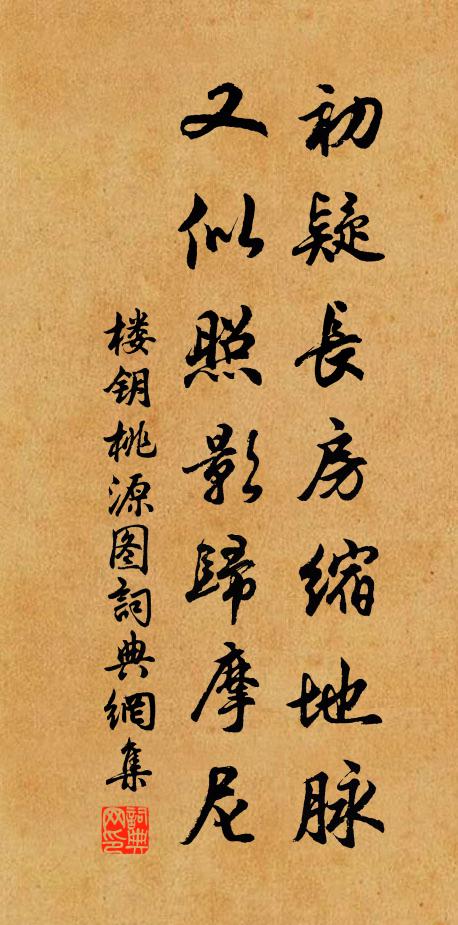 初疑長房縮地脉
又似照影歸摩尼
楼钥桃源图詞典網集
詞典网印